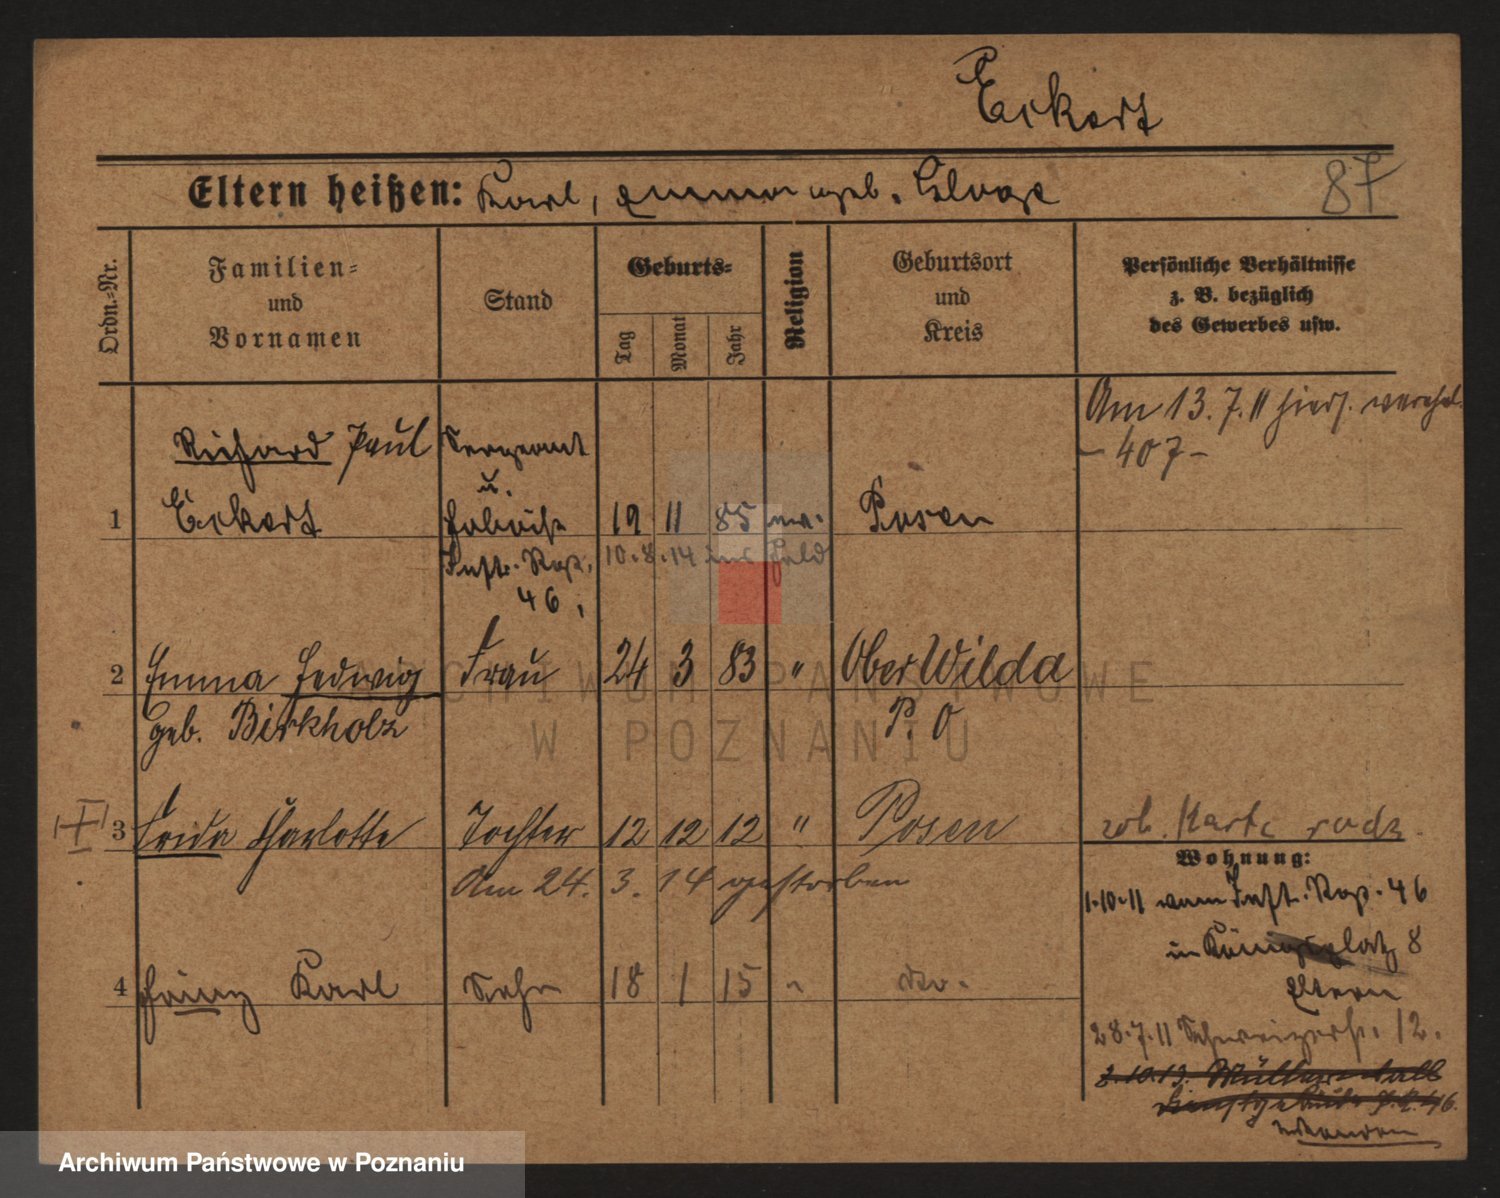 Eckert
Eltern heißen: Karl, Emma geb. Kluge
87
Ordn.-Nr.
Familien-
und
Vornamen
Stand
Geburts-
Tag
Monat
Jahr
Religion
Geburtsort
und
Kreis
Persönliche Verhältnisse
z. B. bezüglich
des Gewerbes usw.
Am 13. 7. 11 hiers. verehel.
- 407 -
Richard Paul Sergeant
u.
1 Eckert Hoboist 19 11 85 ev. Posen
Inft. Rgt. 10.8.14 ins Feld
46,
2 Emma Hedwig Frau 24 3 83 " Ober Wilda
geb. Birkholz P. O
3 Frida Charlotte Tochter 12 12 12 " Posen
zob. Karta rodz.
Am 24. 3. 14 gestorben
4 Heinz Karl Sohn 18 1 15 " do.
Wohnung:
1.10.11 vom Inft. Rgt. 46
in Königsplatz 8
Eltern
28.7.11 Schweizerstr. 12.
3.10.13.
Dienstgebäude J. R. 46.
ARCHIWUM PAŃSTWOWE
W POZNANIU
Archiwum Państwowe w Poznaniu